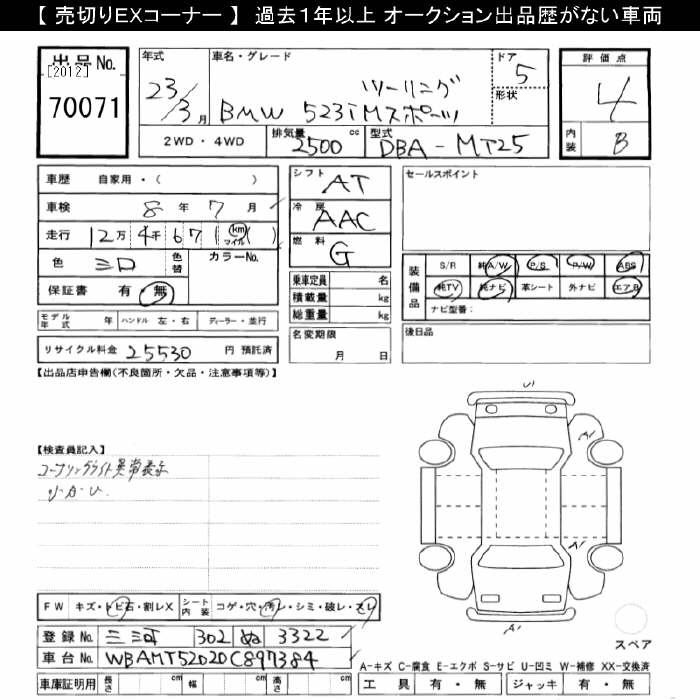 【 売切りEXコーナー 】 過去１年以上 オークション出品歴がない車両
出品No.
[2012]
70071
年式
23/3月
車名・グレード
ツーリング
BMW 523i Mスポーツ
ドア
5
形状
評価点
4
内装 B
2WD・4WD
排気量 2500 cc
型式 DBA-MT25
車歴 自家用・( )
車検 8年 7月
走行 12万 4千 6 7 (km マイル)( )
色 シロ 色替 カラーNo.
保証書 有・無
モデル年式 年 ハンドル 左・右 ディーラー・並行
リサイクル料金 25530 円 預託済
シフト AT
冷房 AAC
燃料 G
乗車定員 名
積載量 kg
総重量 kg
名変期限
月 日
セールスポイント
装備品
S/R 純A/W P/S P/W ABS
純TV 純ナビ 革シート 外ナビ エアB
ナビ型番:
後日品
【出品店申告欄(不良箇所・欠品・注意事項等)】
【検査員記入】
コーナリングライト異常表示
A1
A1
A1
スペア
FW キズ・トビ石・割レX シート内装 コゲ・穴・汚レ・シミ・破レ・スレ
登録No. 三河 302 ぬ 3322
車台No. WBAMT52020C897384
車庫証明用 長さ cm 幅 cm 高さ cm
A-キズ C-腐食 E-エクボ S-サビ U-凹ミ W-補修 XX-交換済
工具 有・無 ジャッキ 有・無